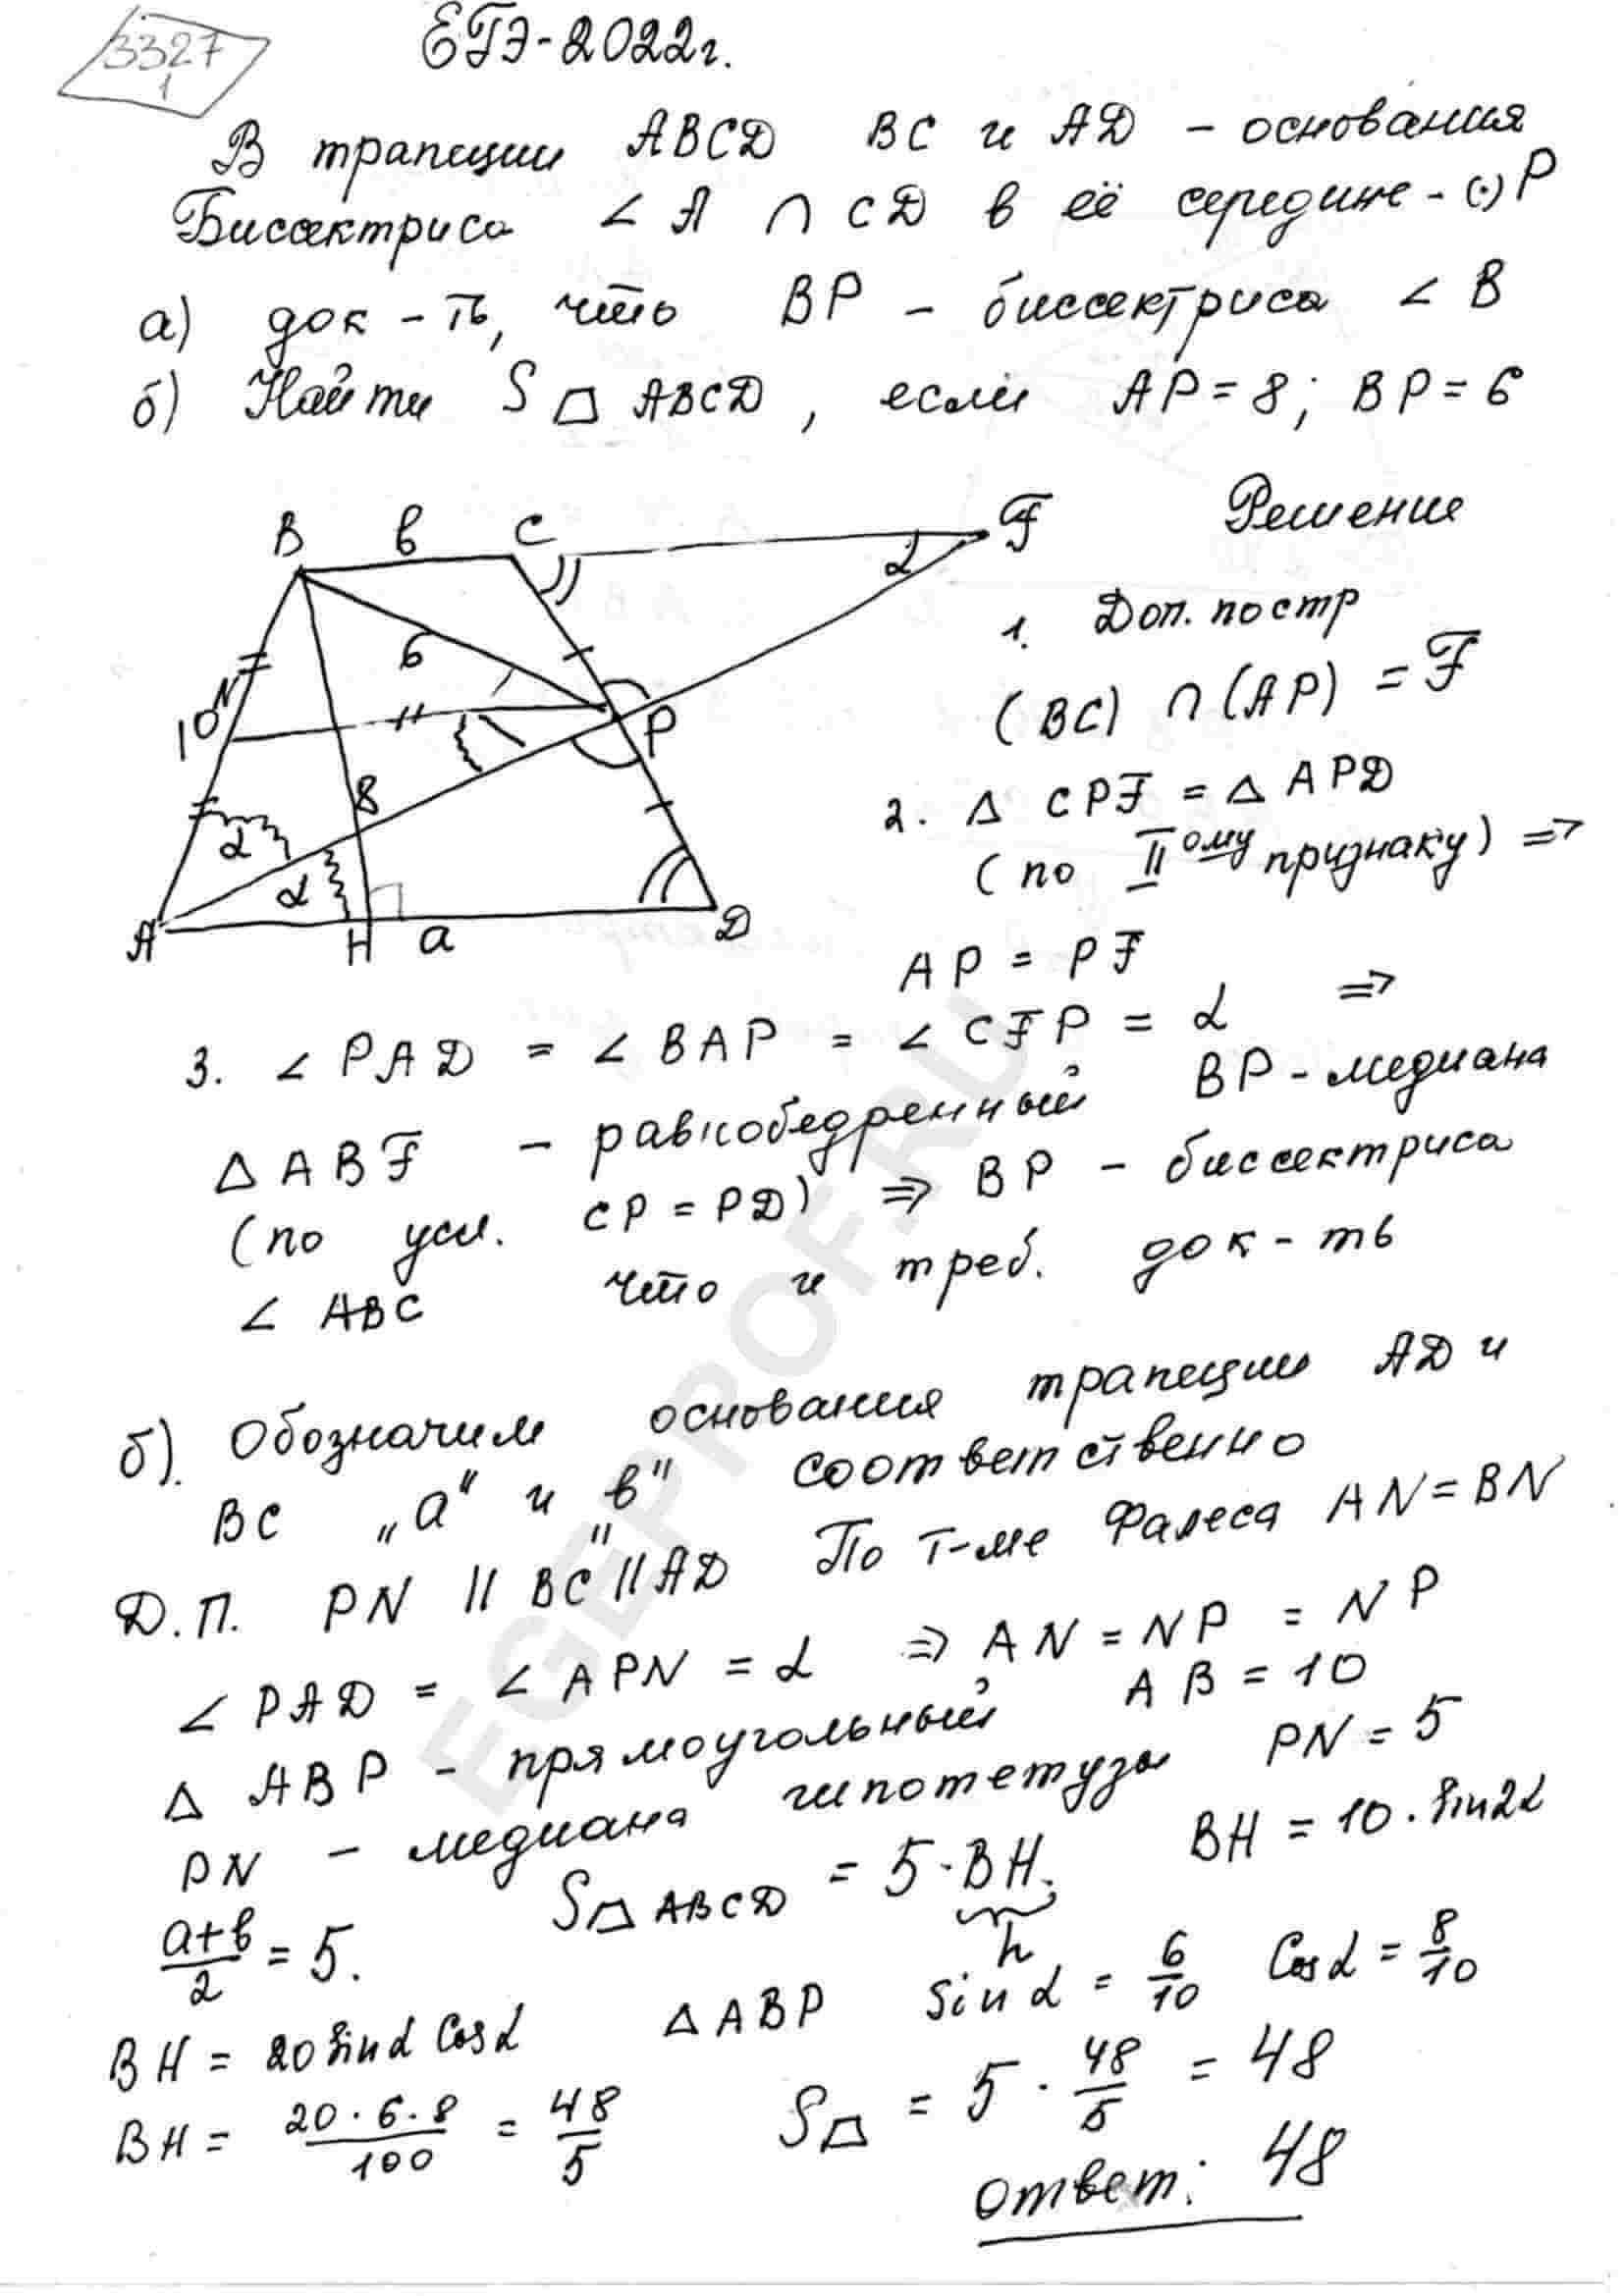 3327
1
ЕГЭ-2022г.
В трапеции ABCD BC и AD - основания
Биссектриса ∠ A ∩ CD в её середине - (·) P
а) док - ть, что BP - биссектриса ∠ B
б) Найти S ABCD, если AP = 8; BP = 6
B в C F
2
6
N
10
P
8
α
α
A H a D
Решение
1. Доп. постр
(BC) ∩ (AP) = F
2. △ CPF = △ APD
(по II ому признаку) ⇒
AP = PF
3. ∠ PAD = ∠ BAP = ∠ CFP = α ⇒
△ ABF - равнобедренный BP - медиана
(по усл. CP = PD) ⇒ BP - биссектриса
∠ ABC что и треб. док - ть
б). Обозначим основания трапеции AD и
BC „a" и „в" соответственно
Д.П. PN || BC || AD По т-ме Фалеса AN = BN
∠ PAD = ∠ APN = α ⇒ AN = NP = NP
△ ABP - прямоугольный AB = 10
PN - медиана гипотетузы PN = 5
a+в/2 = 5. S ABCD = 5 · BH. BH = 10 · Sin2α
h
BH = 20 Sinα Cosα △ ABP Sinα = 6/10 Cosα = 8/10
BH = 20·6·8/100 = 48/5 S = 5 · 48/5 = 48
Ответ: 48
EGEPROF.RU